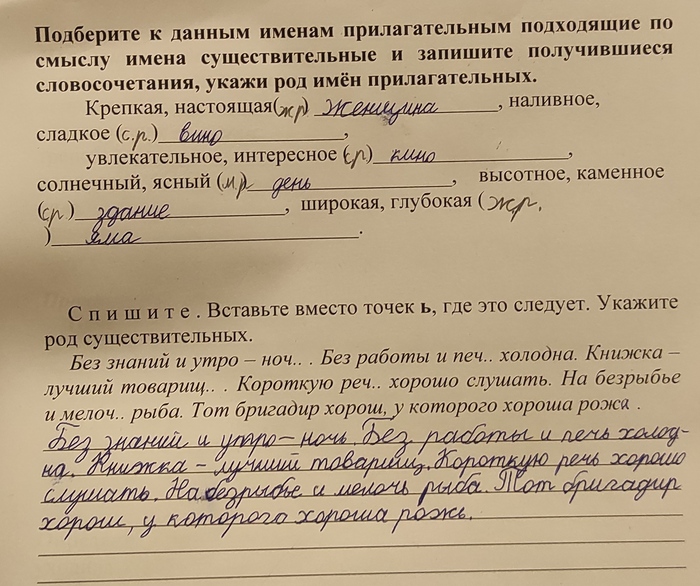 Подберите к данным именам прилагательным подходящие по
смыслу имена существительные и запишите получившиеся
словосочетания, укажи род имён прилагательных.
Крепкая, настоящая(жр) женщина, наливное,
сладкое (с.р.) вино,
увлекательное, интересное (ср) кино,
солнечный, ясный (м.р) день, высотное, каменное
(ср) здание, широкая, глубокая ( жр.
) яма.
Спишите. Вставьте вместо точек ь, где это следует. Укажите
род существительных.
Без знаний и утро – ноч.. . Без работы и печ.. холодна. Книжка –
лучший товарищ.. . Короткую реч.. хорошо слушать. На безрыбье
и мелоч.. рыба. Тот бригадир хорош, у которого хороша рожь.
Без знаний и утро – ночь. Без работы и печь холод-
на. Книжка – лучший товарищ. Короткую речь хорошо
слушать. На безрыбье и мелочь рыба. Тот бригадир
хорош, у которого хороша рожь.